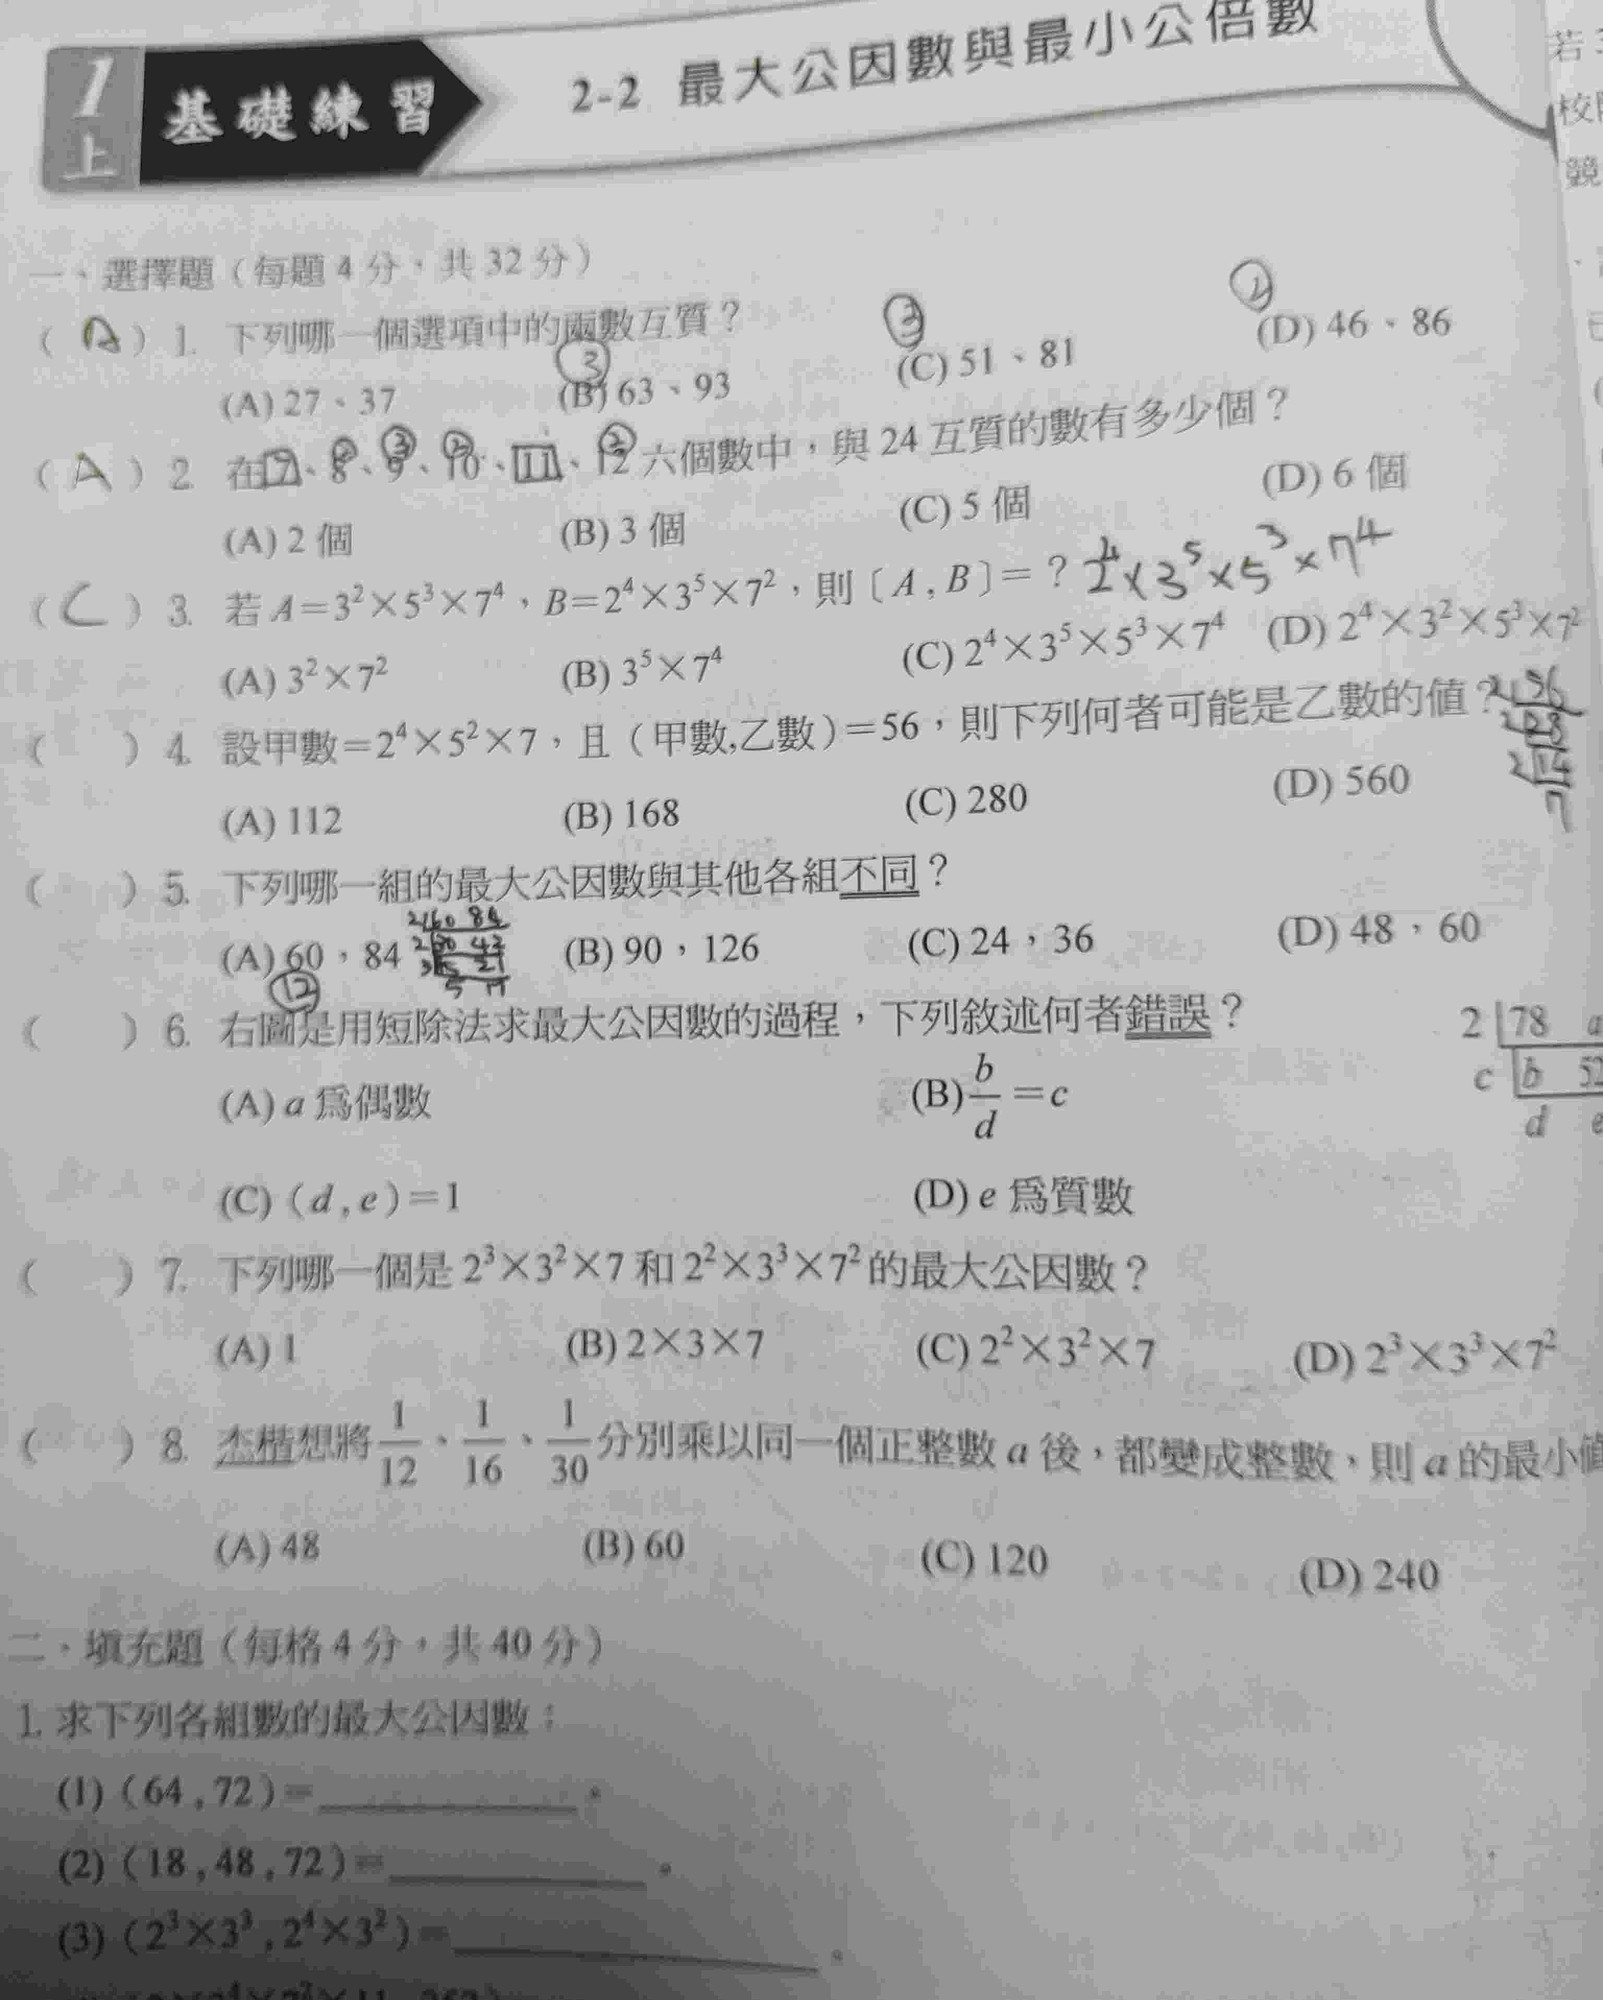 1上 基礎練習 2-2 最大公因數與最小公倍數
一、選擇題（每題4分，共32分）
（ A ）1. 下列哪一個選項中的兩數互質？
(A) 27、37 (B) 63、93 (C) 51、81 (D) 46、86
③ ③ ②
（ A ）2. 在7、8、9、10、11、12六個數中，與24互質的數有多少個？
② ③ ② ②
(A) 2個 (B) 3個 (C) 5個 (D) 6個
（ C ）3. 若A=3²×5³×7⁴，B=2⁴×3⁵×7²，則〔A,B〕=？ 2⁴×3⁵×5³×7⁴
(A) 3²×7² (B) 3⁵×7⁴ (C) 2⁴×3⁵×5³×7⁴ (D) 2⁴×3²×5³×7²
（ ）4. 設甲數=2⁴×5²×7，且（甲數,乙數）=56，則下列何者可能是乙數的值？
2 56
2 28
2 14
7
(A) 112 (B) 168 (C) 280 (D) 560
（ ）5. 下列哪一組的最大公因數與其他各組不同？
2 60 84
2 30 42
3 15 21
5
(A) 60，84 (B) 90，126 (C) 24，36 (D) 48，60
⑫
（ ）6. 右圖是用短除法求最大公因數的過程，下列敘述何者錯誤？
2 78 a
c b 52
d e
(A) a 為偶數 (B) b/d = c
(C)（d,e）=1 (D) e 為質數
（ ）7. 下列哪一個是2³×3²×7和2²×3³×7²的最大公因數？
(A) 1 (B) 2×3×7 (C) 2²×3²×7 (D) 2³×3³×7²
（ ）8. 杰楷想將1/12、1/16、1/30分別乘以同一個正整數a後，都變成整數，則a的最小值
(A) 48 (B) 60 (C) 120 (D) 240
二、填充題（每格4分，共40分）
1. 求下列各組數的最大公因數：
(1)（64,72）=＿＿＿＿＿。
(2)（18,48,72）=＿＿＿＿＿。
(3)（2³×3³,2⁴×3²）=＿＿＿＿＿。
若
校
競